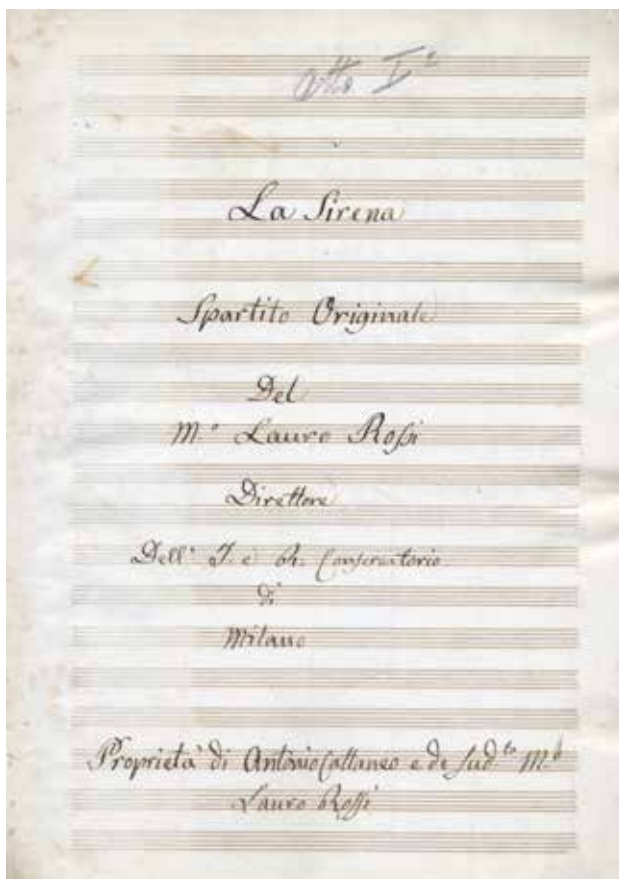 Atto I°
La Sirena
Spartito Originale
Del
M.° Lauro Rossi
Direttore
Dell' I. e R. Conservatorio
di
Milano
Proprietà di Antonio Cattaneo e de Sud.to M.°
Lauro Rossi